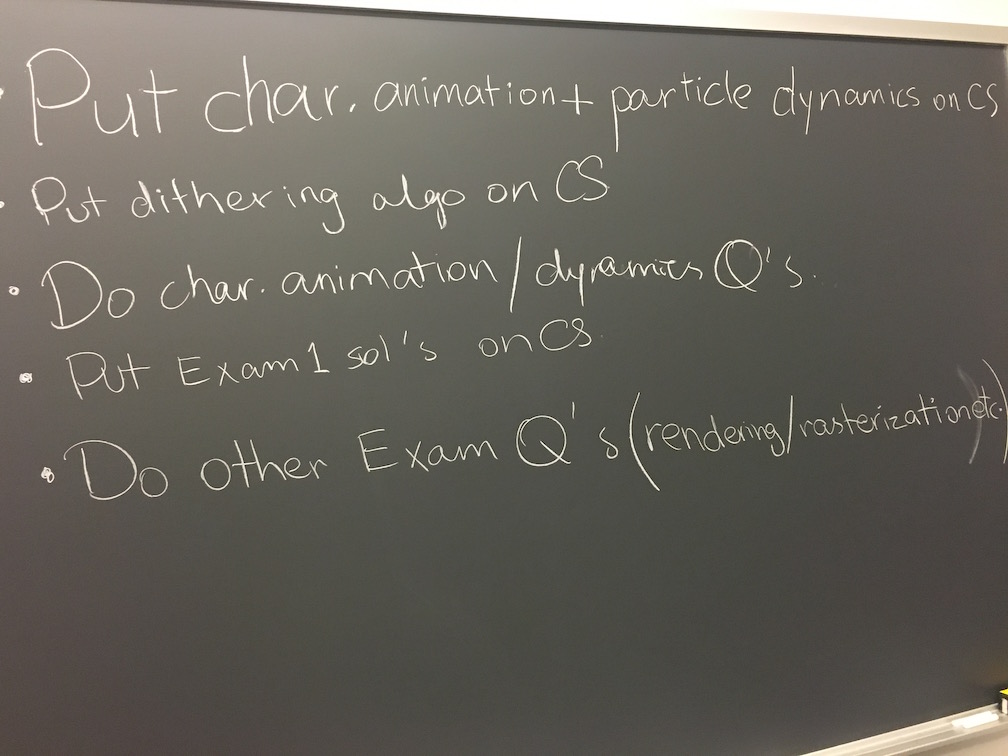 • Put char. animation + particle dynamics on CS
• Put dithering algo on CS
• Do char. animation/dynamics Q's.
• Put Exam 1 sol's on CS.
• Do other Exam Q's (rendering/rasterization etc)